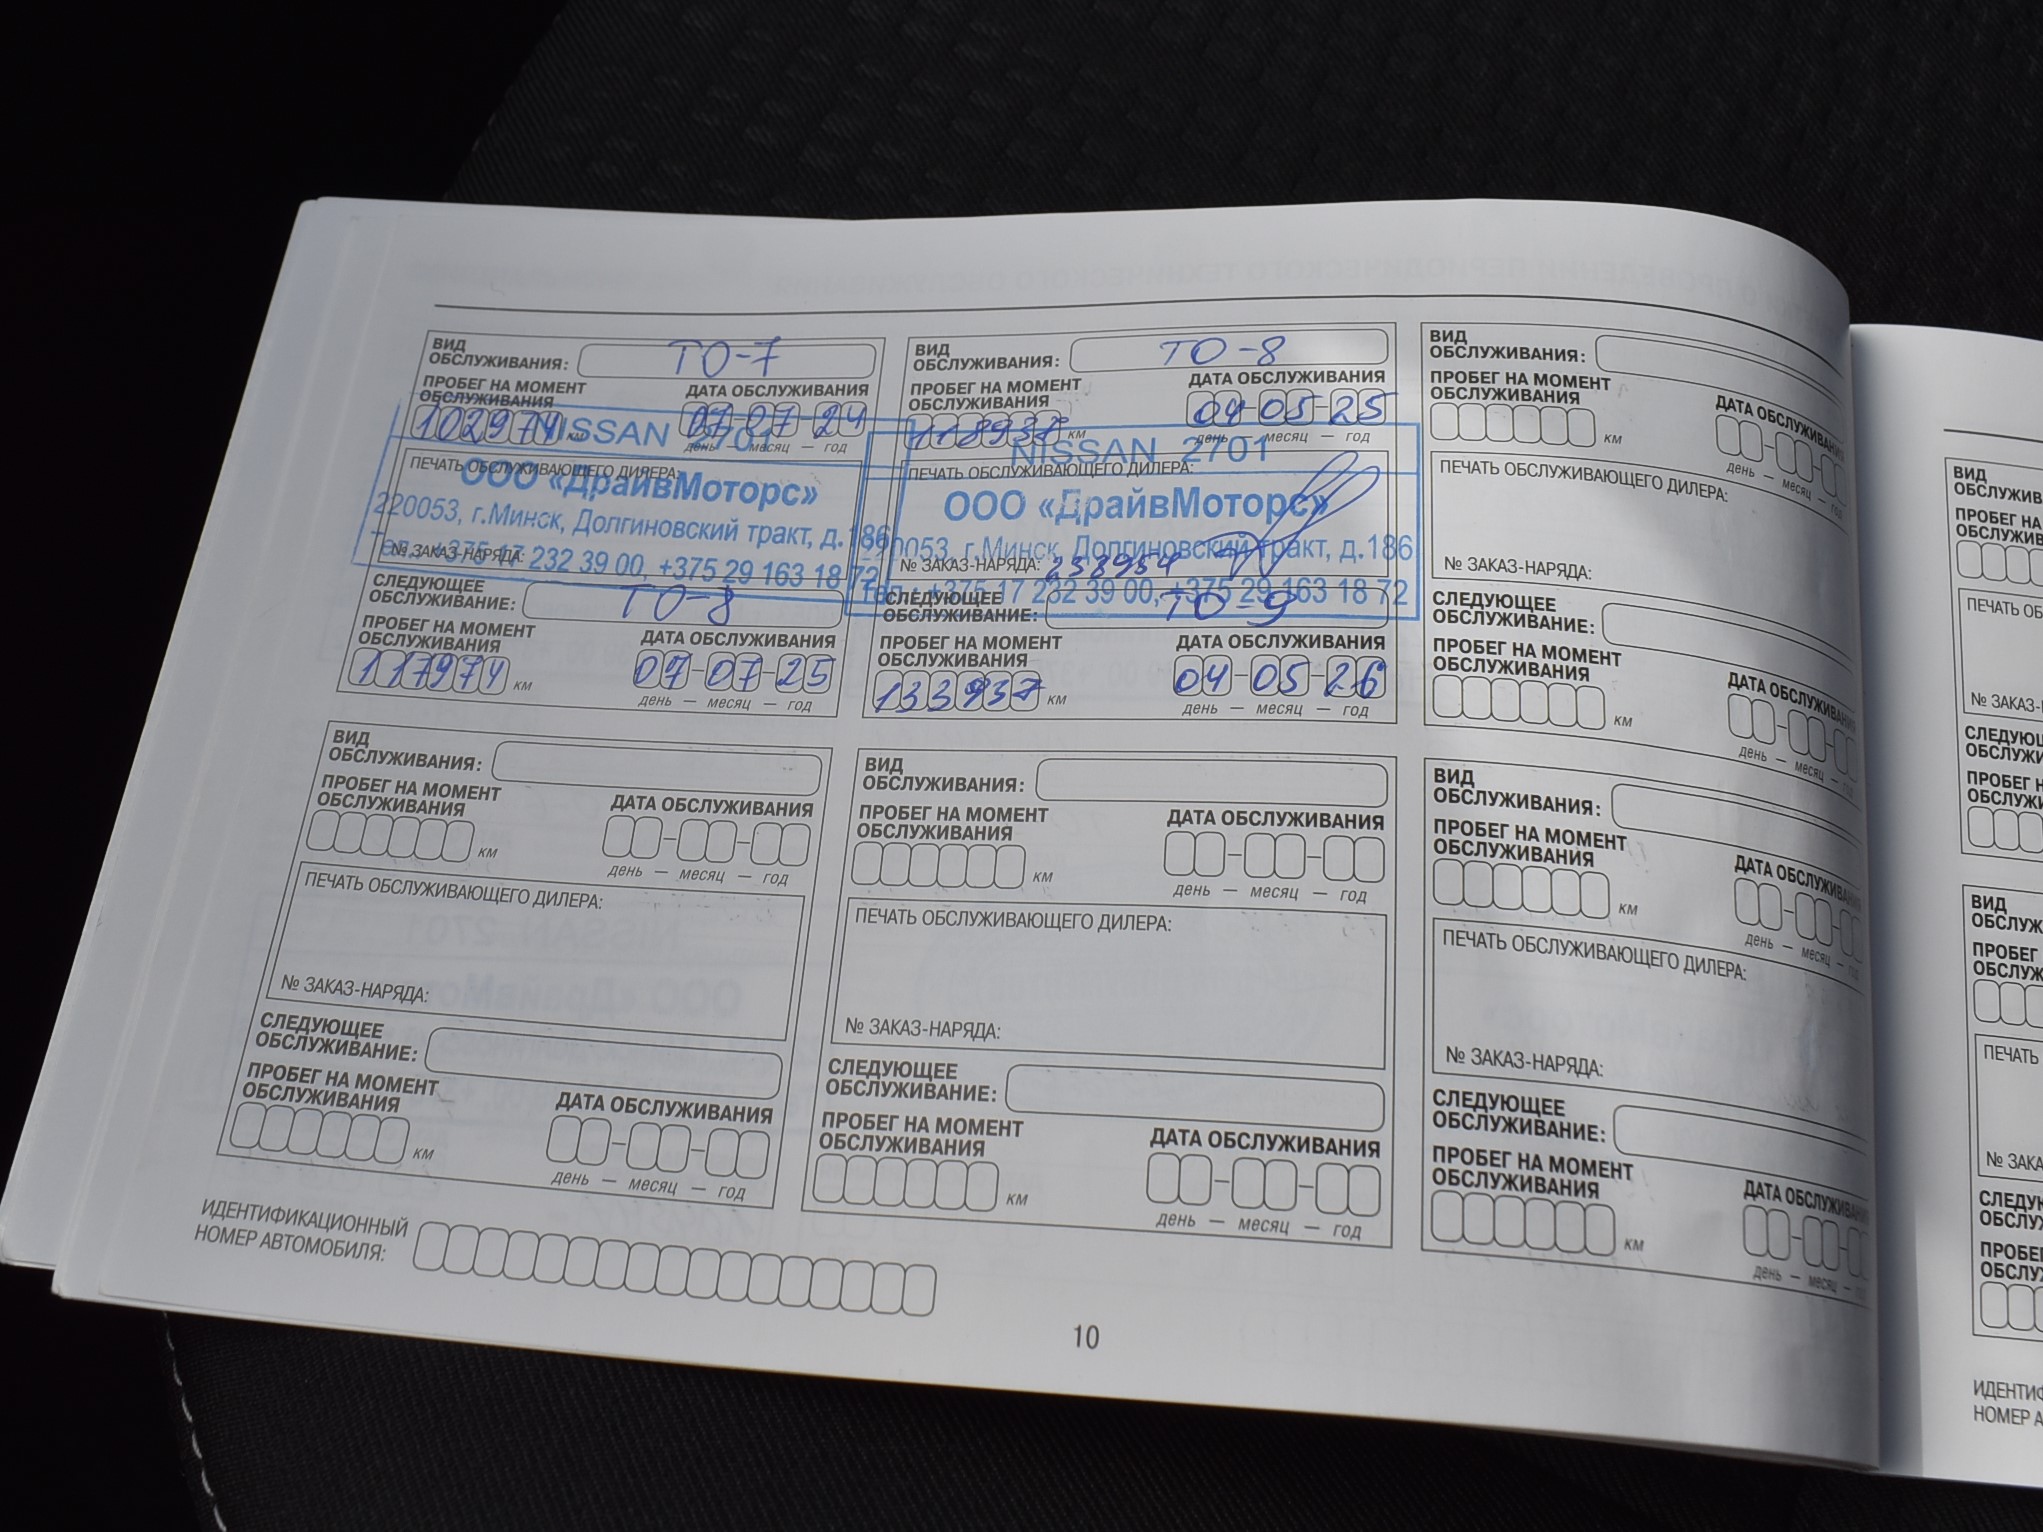 ВИД
ОБСЛУЖИВАНИЯ: ТО-7
ПРОБЕГ НА МОМЕНТ
ОБСЛУЖИВАНИЯ
ДАТА ОБСЛУЖИВАНИЯ
102974 км
07-07-24
день — месяц — год
NISSAN 2701
ПЕЧАТЬ ОБСЛУЖИВАЮЩЕГО ДИЛЕРА:
ООО «ДрайвМоторс»
220053, г.Минск, Долгиновский тракт, д.186
№ ЗАКАЗ-НАРЯДА:
тел.: +375 17 232 39 00, +375 29 163 18 72
СЛЕДУЮЩЕЕ
ОБСЛУЖИВАНИЕ: ТО-8
ПРОБЕГ НА МОМЕНТ
ОБСЛУЖИВАНИЯ
ДАТА ОБСЛУЖИВАНИЯ
117974 км
07-07-25
день — месяц — год
ВИД
ОБСЛУЖИВАНИЯ: ТО-8
ПРОБЕГ НА МОМЕНТ
ОБСЛУЖИВАНИЯ
ДАТА ОБСЛУЖИВАНИЯ
118937 км
04-05-25
день — месяц — год
NISSAN 2701
ПЕЧАТЬ ОБСЛУЖИВАЮЩЕГО ДИЛЕРА:
ООО «ДрайвМоторс»
220053, г.Минск, Долгиновский тракт, д.186
№ ЗАКАЗ-НАРЯДА: 258954
тел.: +375 17 232 39 00, +375 29 163 18 72
СЛЕДУЮЩЕЕ
ОБСЛУЖИВАНИЕ: ТО-9
ПРОБЕГ НА МОМЕНТ
ОБСЛУЖИВАНИЯ
ДАТА ОБСЛУЖИВАНИЯ
133937 км
04-05-26
день — месяц — год
ВИД
ОБСЛУЖИВАНИЯ:
ПРОБЕГ НА МОМЕНТ
ОБСЛУЖИВАНИЯ
ДАТА ОБСЛУЖИВАНИЯ
км
день — месяц — год
ПЕЧАТЬ ОБСЛУЖИВАЮЩЕГО ДИЛЕРА:
№ ЗАКАЗ-НАРЯДА:
СЛЕДУЮЩЕЕ
ОБСЛУЖИВАНИЕ:
ПРОБЕГ НА МОМЕНТ
ОБСЛУЖИВАНИЯ
ДАТА ОБСЛУЖИВАНИЯ
км
день — месяц —
ВИД
ОБСЛУЖИВАНИЯ:
ПРОБЕГ НА МОМЕНТ
ОБСЛУЖИВАНИЯ
ДАТА ОБСЛУЖИВАНИЯ
км
день — месяц — год
ПЕЧАТЬ ОБСЛУЖИВАЮЩЕГО ДИЛЕРА:
№ ЗАКАЗ-НАРЯДА:
СЛЕДУЮЩЕЕ
ОБСЛУЖИВАНИЕ:
ПРОБЕГ НА МОМЕНТ
ОБСЛУЖИВАНИЯ
ДАТА ОБСЛУЖИВАНИЯ
км
день — месяц — год
ВИД
ОБСЛУЖИВАНИЯ:
ПРОБЕГ НА МОМЕНТ
ОБСЛУЖИВАНИЯ
ДАТА ОБСЛУЖИВАНИЯ
км
день — месяц — год
ПЕЧАТЬ ОБСЛУЖИВАЮЩЕГО ДИЛЕРА:
№ ЗАКАЗ-НАРЯДА:
СЛЕДУЮЩЕЕ
ОБСЛУЖИВАНИЕ:
ПРОБЕГ НА МОМЕНТ
ОБСЛУЖИВАНИЯ
ДАТА ОБСЛУЖИВАНИЯ
км
день — месяц — год
ВИД
ОБСЛУЖИВАНИЯ:
ПРОБЕГ НА МОМЕНТ
ОБСЛУЖИВАНИЯ
ДАТА ОБСЛУЖИВАНИЯ
км
день — месяц —
ПЕЧАТЬ ОБСЛУЖИВАЮЩЕГО ДИЛЕРА:
№ ЗАКАЗ-НАРЯДА:
СЛЕДУЮЩЕЕ
ОБСЛУЖИВАНИЕ:
ПРОБЕГ НА МОМЕНТ
ОБСЛУЖИВАНИЯ
ДАТА ОБСЛУЖИВАНИЯ
км
день — месяц —
ИДЕНТИФИКАЦИОННЫЙ
НОМЕР АВТОМОБИЛЯ:
10
ВИД
ПРОБЕГ
ПЕЧАТЬ
ВИД
ПРОБЕГ
ПЕЧАТЬ
НОМЕР